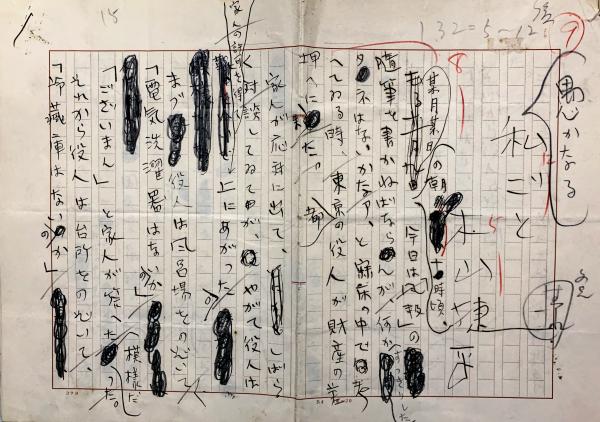 愚かなる
私ごと
木山捷平
某月某日の朝
十時頃、
「今日は「風報」の
随筆を書かねばならんが、何か
タネはないかなア、と寝床の中で考
へてゐる時、東京都の役人が財産の差
押へに来た。
家人が応対に出て、しばら
く対談してゐたが、やがて役人は
家人の諒解を得て
上にあがった。
まづ役人は風呂場をのぞいて、
「電気洗濯器はないのか」
「ございません」と家人が答へた模様だった。
それから役人は台所をのぞいて、
「冷蔵庫はないのか」